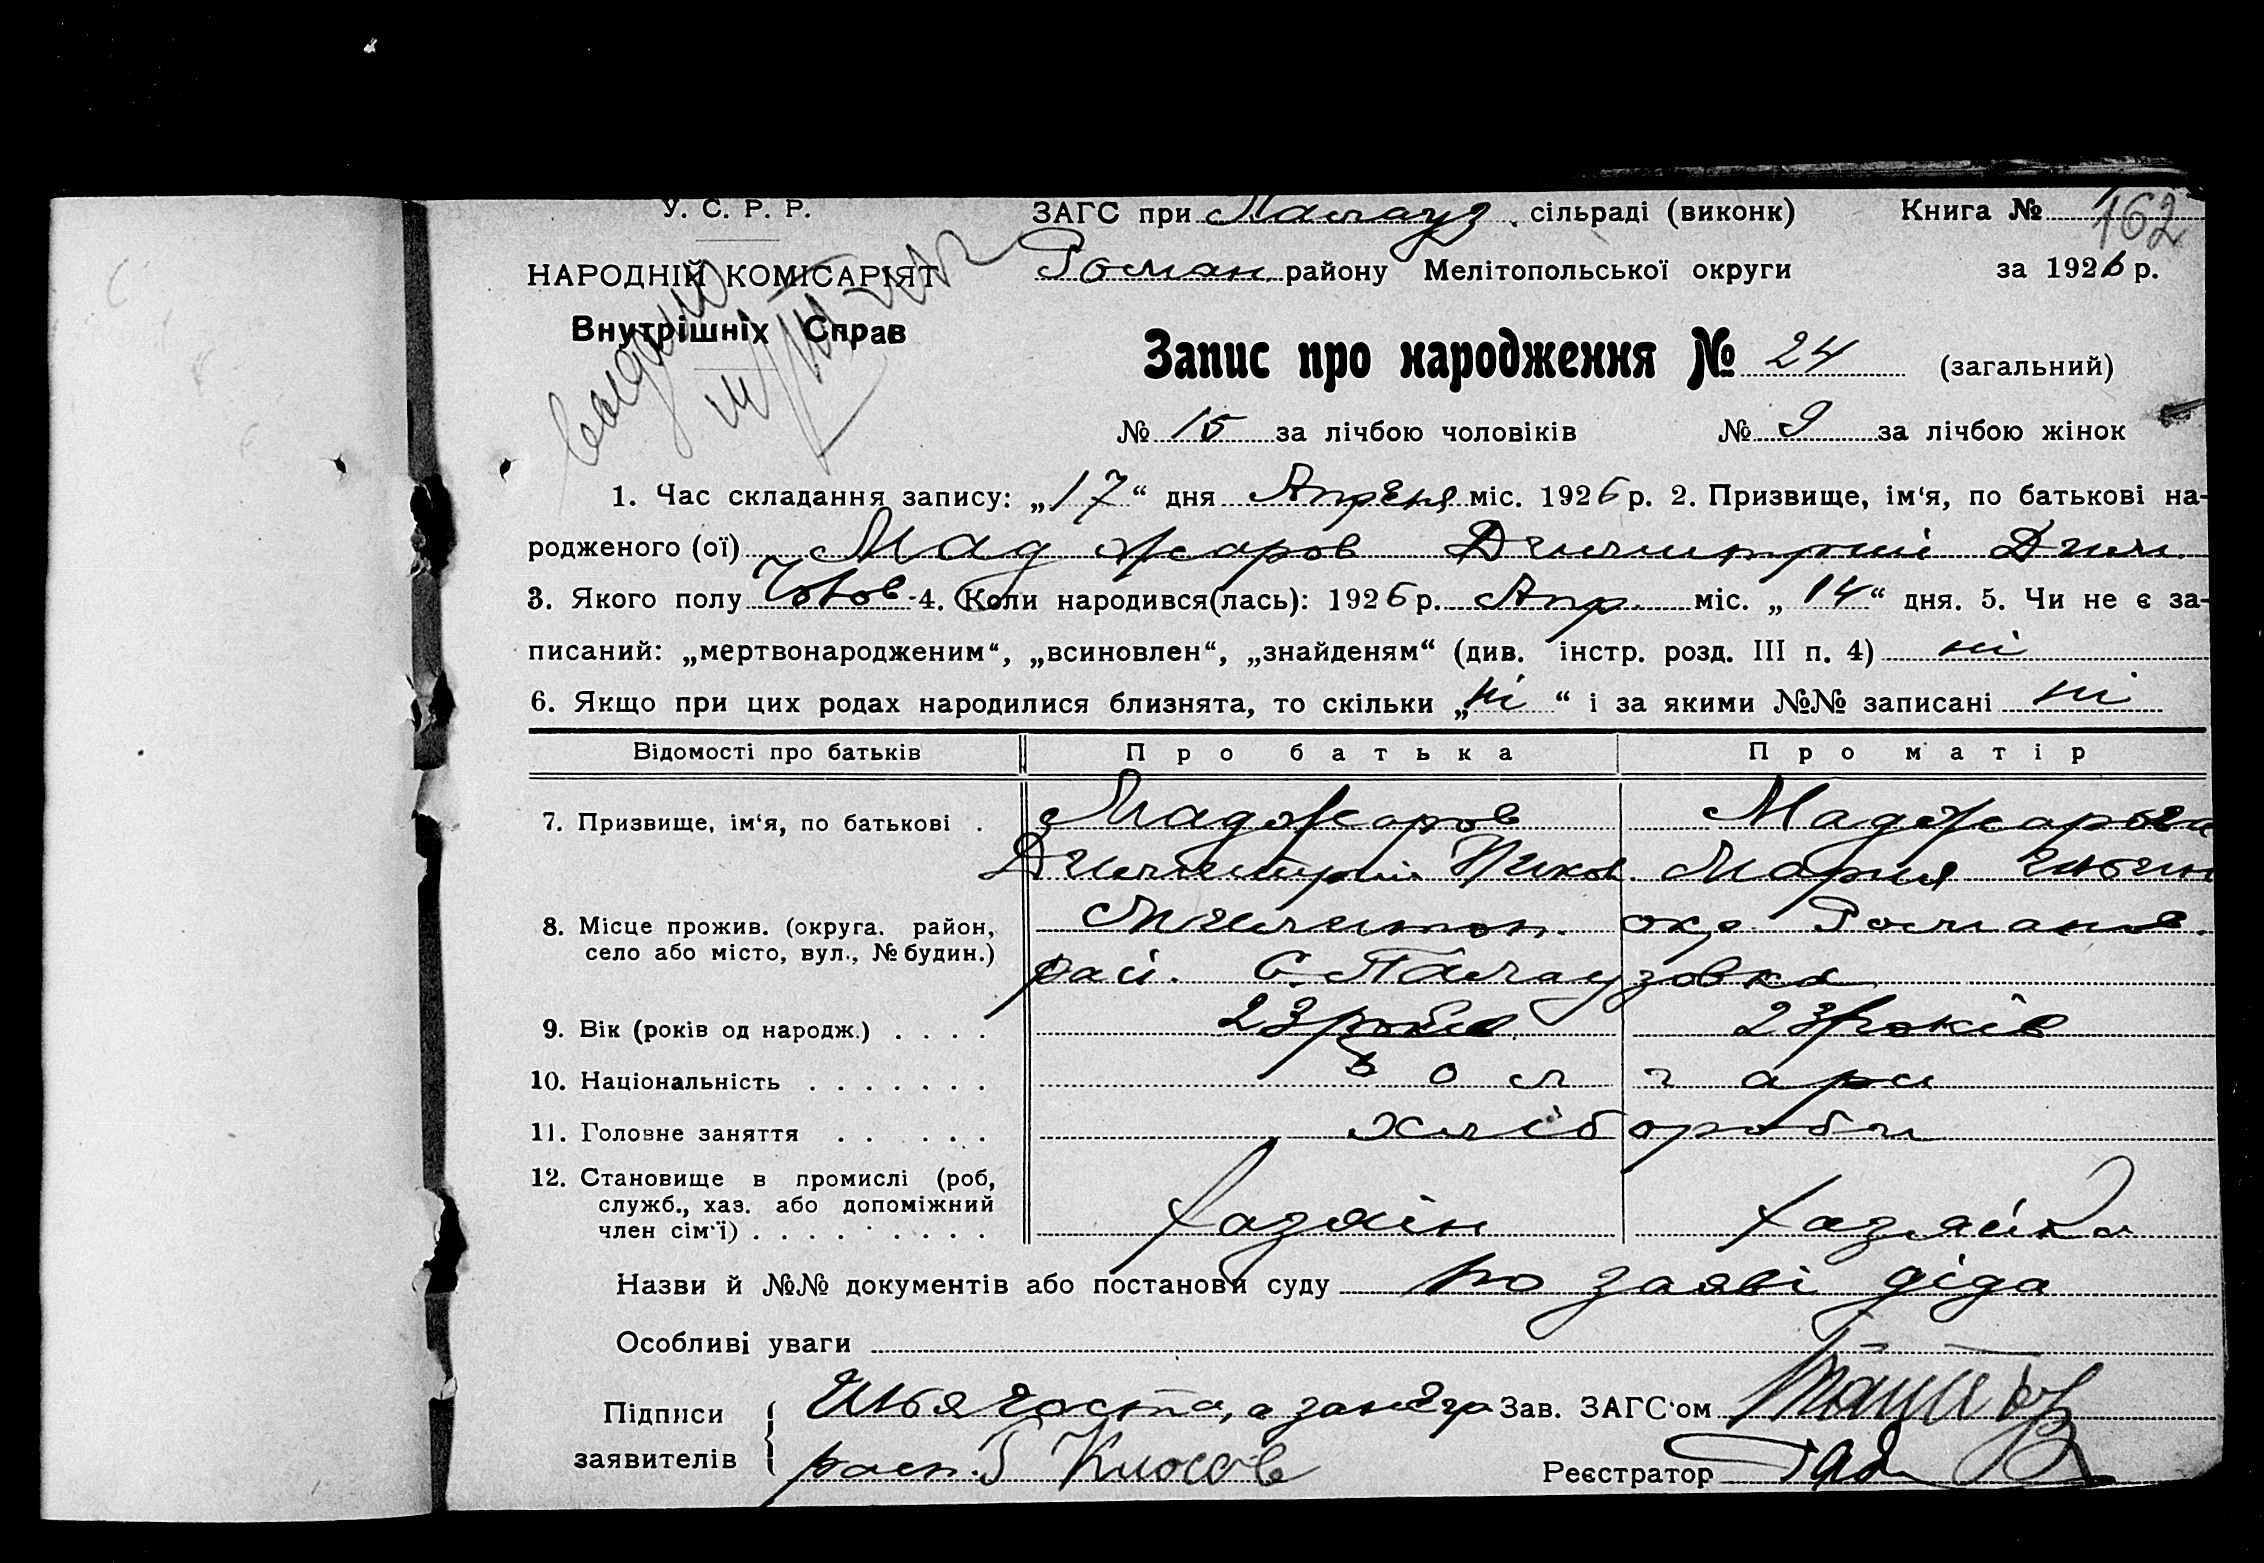 У. С. Р. Р.
НАРОДНІЙ КОМІСАРІЯТ
Внутрішніх Справ
ЗАГС при Палауз. сільраді (виконк) Книга № 162
Роман. району Мелітопольської округи за 1926 р.
Запис про народження № 24 (загальний)
№ 15 за лічбою чоловіків № 9 за лічбою жінок
1. Час складання запису: „17“ дня Апреля міс. 1926 р. 2. Призвище, ім‘я, по батькові на-
родженого (ої) Маджаров Димитрий Дим.
3. Якого полу Чолов. 4. Коли народився(лась): 1926 р. Апр. міс. „14“ дня. 5. Чи не є за-
писаний: „мертвонародженим“, „всиновлен“, „знайденям“ (див. інстр. розд. III п. 4) ні
6. Якщо при цих родах народилися близнята, то скільки „ні“ і за якими №№ записані ні
Відомості про батьків Про батька Про матір
7. Призвище, ім‘я, по батькові . Маджаров Маджарова
Димитрий Никол. Мария Ильин
8. Місце прожив. (округа. район, село або місто, вул., № будин.) Мелитоп. окр. Романов.
рай. С. Палаузовка
9. Вік (років од народж.) . . . . 23 років 23 років
10. Національність . . . . . . . Болгари
11. Головне заняття . . . . . . хлібороби
12. Становище в промислі (роб, служб., хаз. або допоміжний член сім‘ї) . . . . . . . . хазяїн хазяйка
Назви й №№ документів або постанови суду по заяві діда
Особливі уваги
Підписи заявителів Илья а за него Зав. ЗАГС‘ом
расп. Г Кюсов Реєстратор